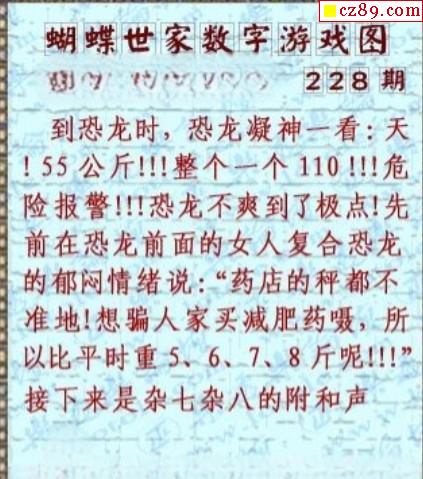 cz89.com
蝴蝶世家数字游戏图
228期
到恐龙时，恐龙凝神一看：天
！55公斤!!!整个一个110!!!危
险报警!!!恐龙不爽到了极点!先
前在恐龙前面的女人复合恐龙
的郁闷情绪说：“药店的秤都不
准地!想骗人家买减肥药嗫，所
以比平时重5、6、7、8斤呢!!!”
接下来是杂七杂八的附和声